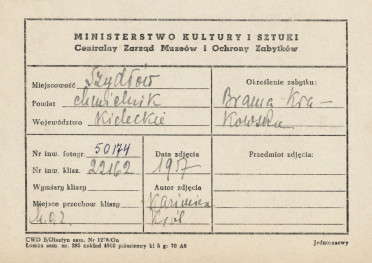 MINISTERSTWO KULTURY I SZTUKI
Centralny Zarząd Muzeów i Ochrony Zabytków
Miejscowość Szydłów
Powiat chmielnik
Województwo Kieleckie
Określenie zabytku:
Brama Kra-
kowska
Nr inw. fotogr. 50174
Nr inw. klisz. 22162
Wymiary kliszy
Miejsce przechow. kliszy
Data zdjęcia
1957
Autor zdjęcia
Kazimierz
Król
Przedmiot zdjęcia:
CWD B/Olsztyn zam. Nr
Łomża zam. nr. 285 nakład 4900 piśmienny kl 5 g: 70 A6
Jednorazowy